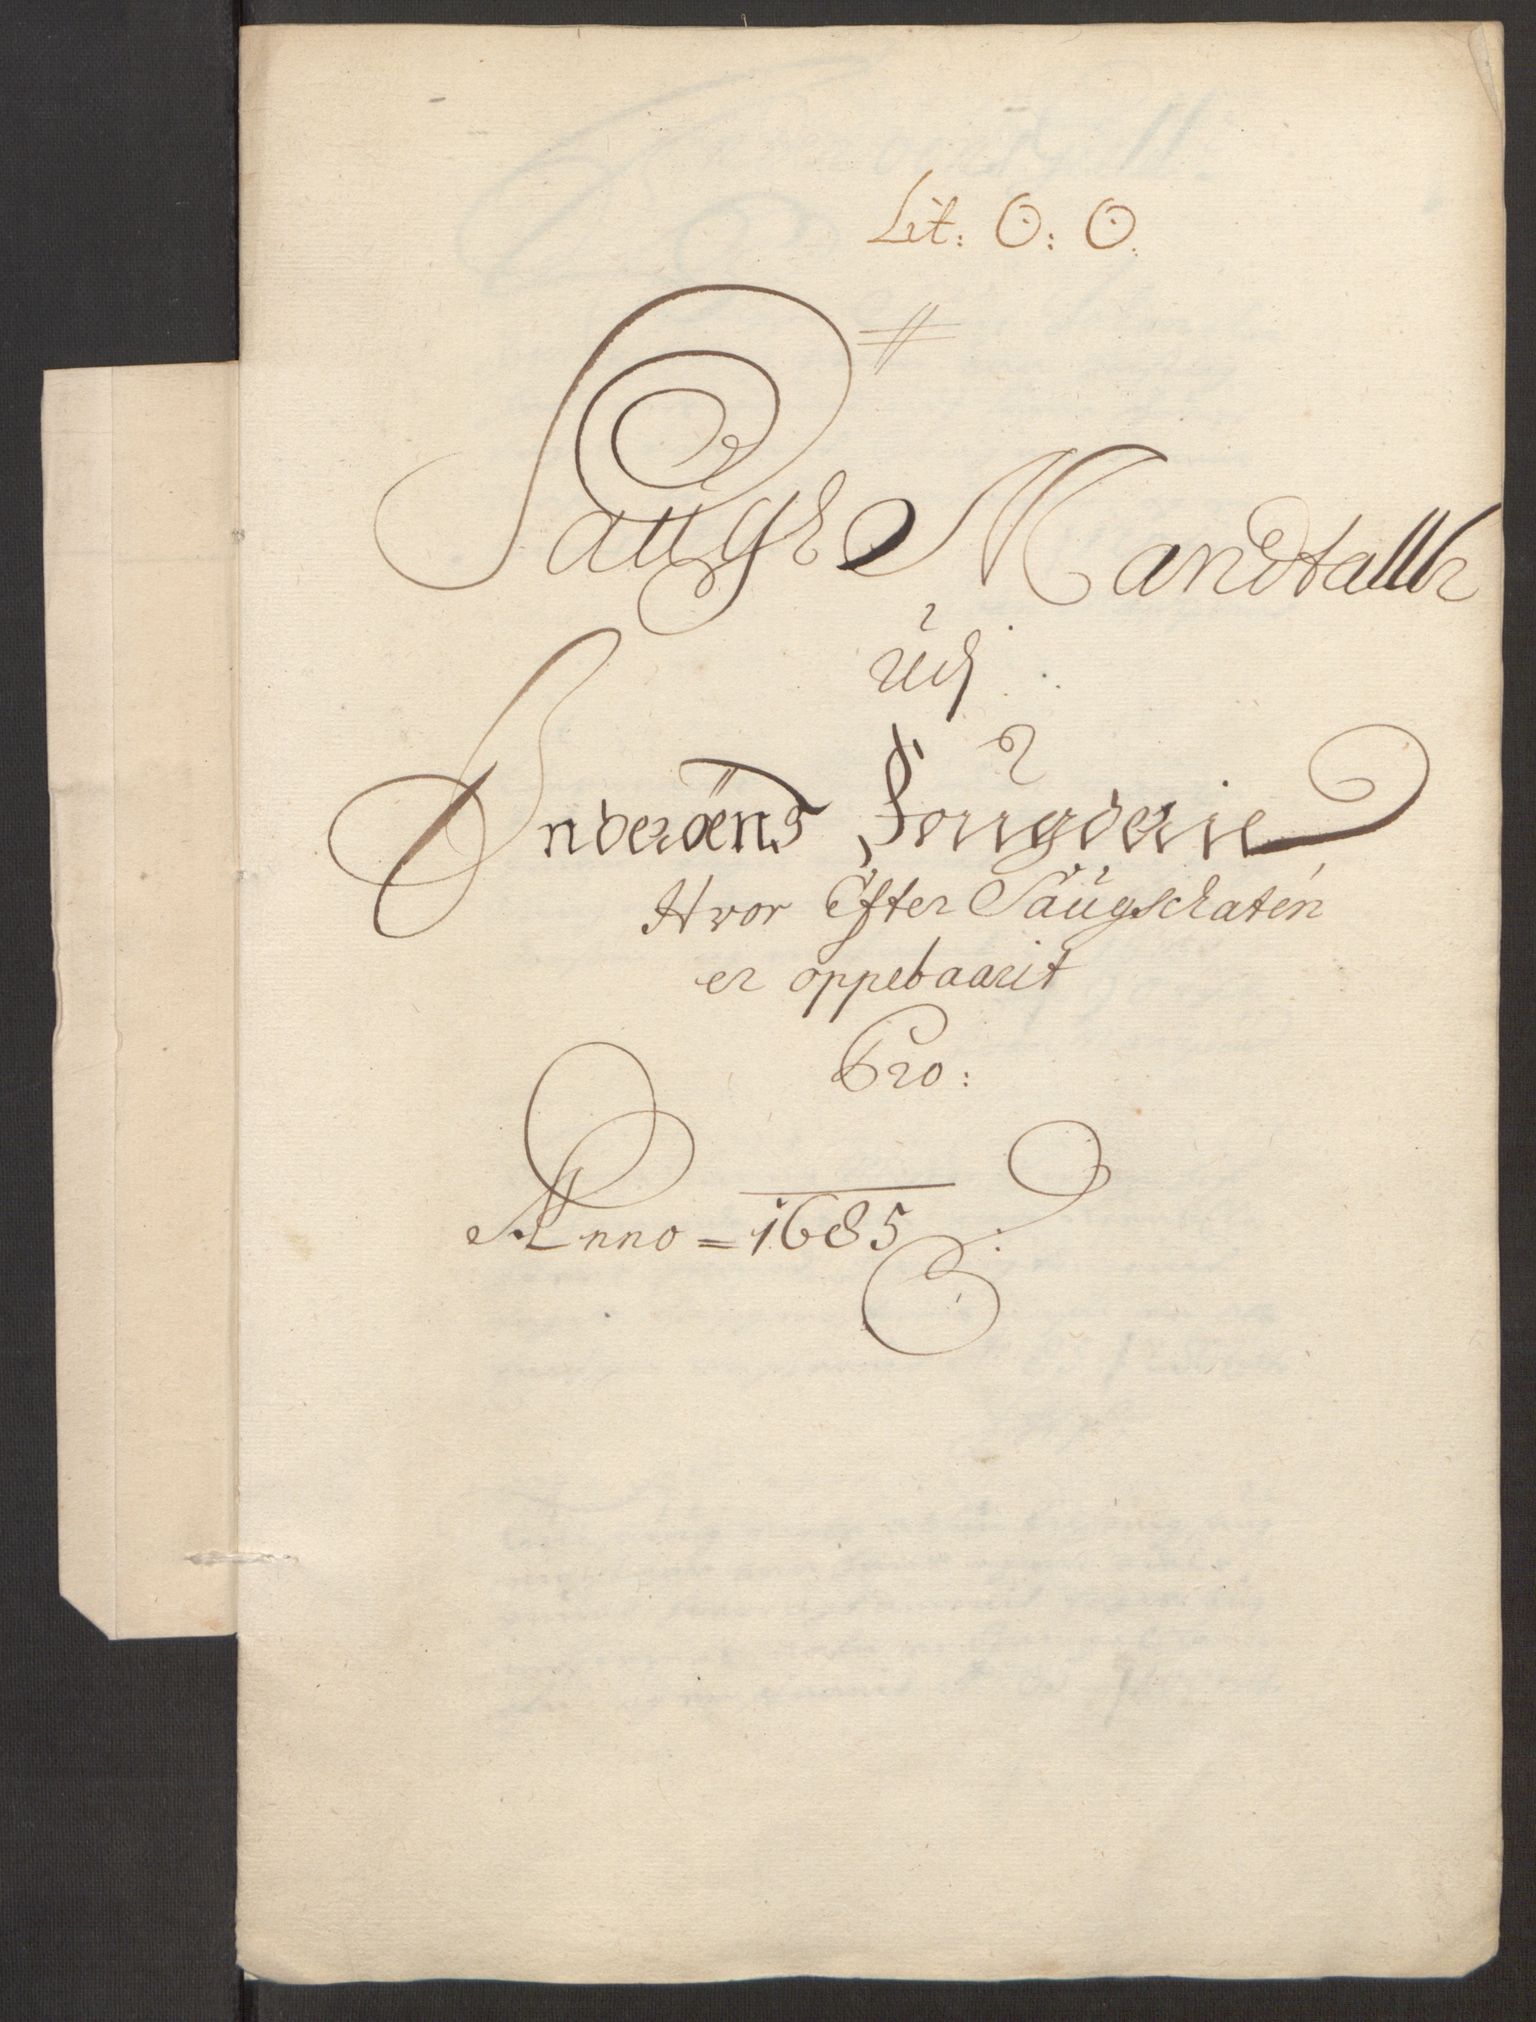 Lit: O: O.
Saugs Mandtall
udj
Inderøens Fougderie
Hvor Effter Saugschaten
er oppebaarit
Pro:
Anno = 1685